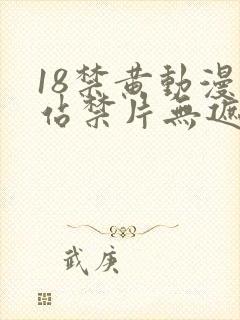 18禁黄動漫
佔禁片無遮
武庚